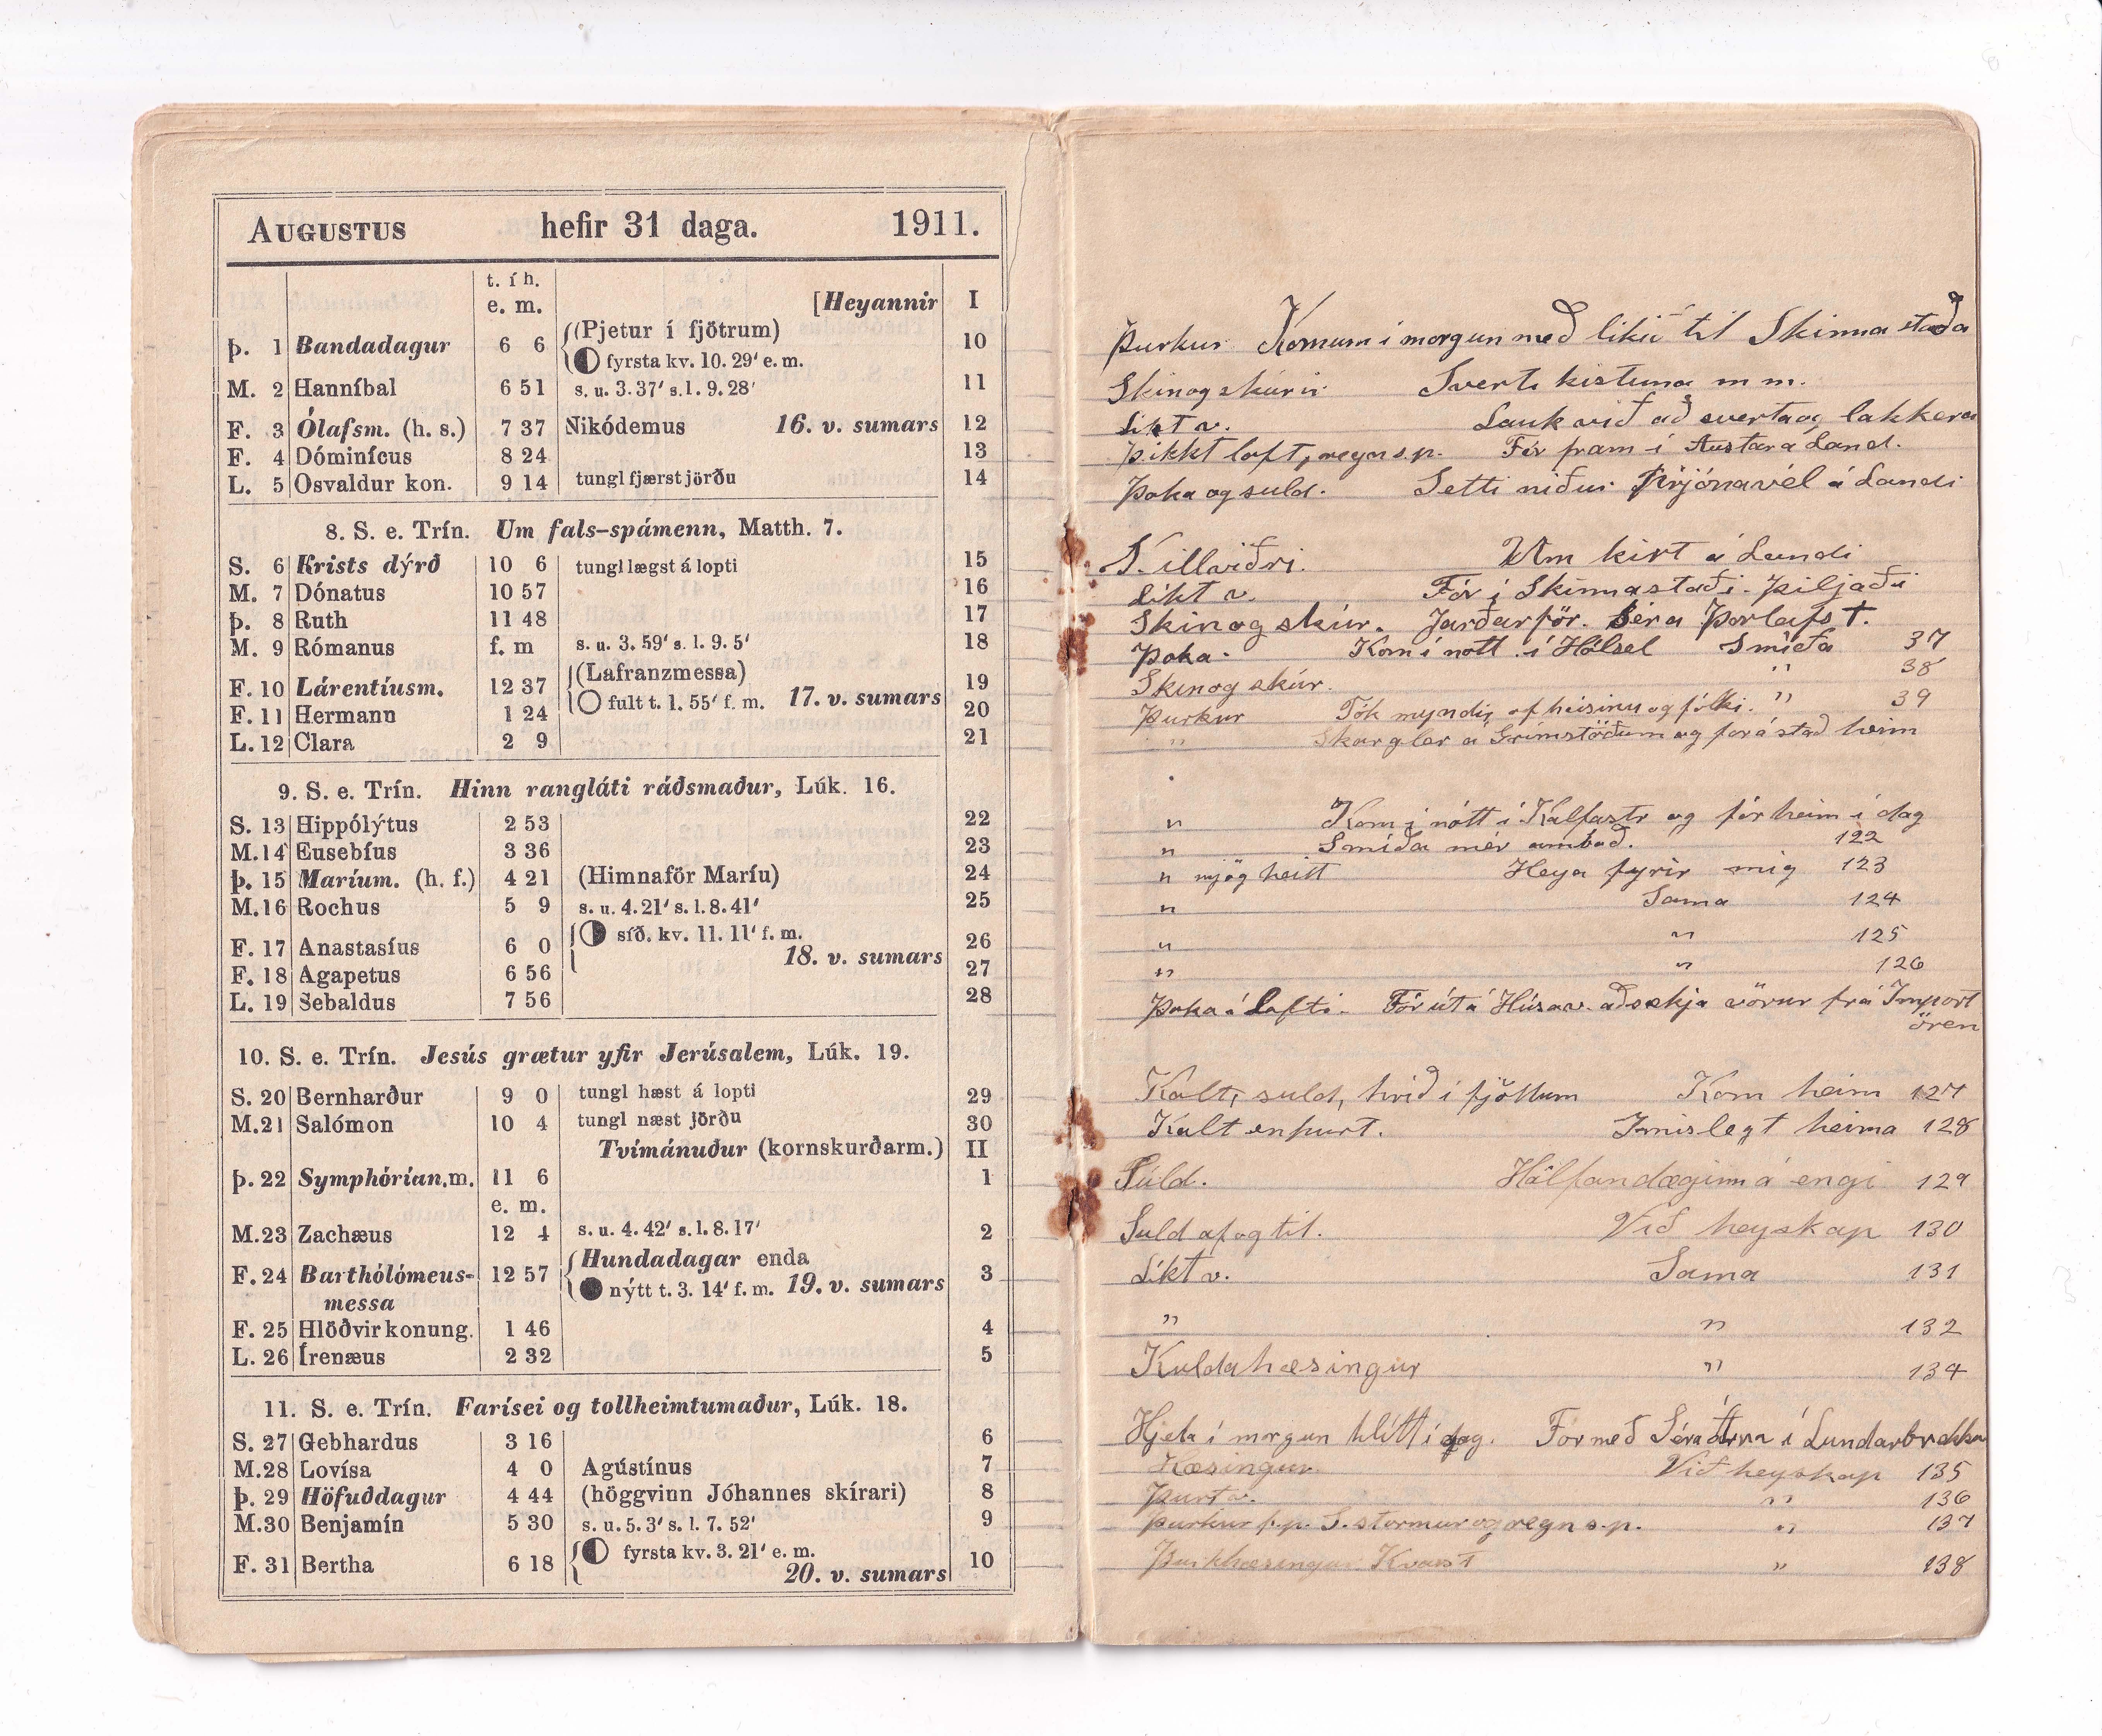 AUGUSTUS hefir 31 daga. 1911.
t. í h.
e. m. [Heyannir I
Þ. 1 Bandadagur 6 6 (Pjetur í fjötrum) 10
fyrsta kv. 10. 29' e. m.
M. 2 Hanníbal 6 51 s. u. 3. 37' s. l. 9. 28' 11
F. 3 Ólafsm. (h. s.) 7 37 Nikódemus 16. v. sumars 12
F. 4 Dóminícus 8 24 13
L. 5 Osvaldur kon. 9 14 tungl fjærst jörðu 14
8. S. e. Trín. Um fals-spámenn, Matth. 7.
S. 6 Krists dýrð 10 6 tungl lægst á lopti 15
M. 7 Dónatus 10 57 16
Þ. 8 Ruth 11 48 17
M. 9 Rómanus f. m s. u. 3. 59' s. l. 9. 5' 18
F. 10 Lárentíusm. 12 37 (Lafranzmessa) 19
fult t. 1. 55' f. m. 17. v. sumars
F. 11 Hermann 1 24 20
L. 12 Clara 2 9 21
9. S. e. Trín. Hinn rangláti ráðsmaður, Lúk. 16.
S. 13 Hippólýtus 2 53 22
M. 14 Eusebíus 3 36 23
Þ. 15 Maríum. (h. f.) 4 21 (Himnaför Maríu) 24
M. 16 Rochus 5 9 s. u. 4. 21' s. l. 8. 41' 25
F. 17 Anastasíus 6 0 síð. kv. 11. 11' f. m. 26
18. v. sumars
F. 18 Agapetus 6 56 27
L. 19 Sebaldus 7 56 28
10. S. e. Trín. Jesús grætur yfir Jerúsalem, Lúk. 19.
S. 20 Bernharður 9 0 tungl hæst á lopti 29
M. 21 Salómon 10 4 tungl næst jörðu 30
Tvímánuður (kornskurðarm.) II
Þ. 22 Symphórían.m. 11 6 1
e. m.
M. 23 Zachæus 12 4 s. u. 4. 42' s. l. 8. 17' 2
F. 24 Barthólómeus- 12 57 Hundadagar enda 3
messa nýtt t. 3. 14' f. m. 19. v. sumars
F. 25 Hlöðvir konung. 1 46 4
L. 26 Írenæus 2 32 5
11. S. e. Trín. Farísei og tollheimtumaður, Lúk. 18.
S. 27 Gebhardus 3 16 6
M. 28 Lovísa 4 0 Agústínus 7
Þ. 29 Höfuðdagur 4 44 (höggvinn Jóhannes skírari) 8
M. 30 Benjamín 5 30 s. u. 5. 3' s. l. 7. 52' 9
F. 31 Bertha 6 18 fyrsta kv. 3. 21' e. m. 10
20. v. sumars
Þurkur Komum í morgun með líkið til Skinnastaða
Skin og skúrir Sverti kistuna m m.
Líkt v. Lauk við að sverta og lakkera
Þikkt loft, regn s.p. Fór fram í Austara Land.
Þoka og suld. Setti niður Prjónavél á Landi
N. illviðri. Um kirt á Landi
Líkt v. Fór í Skinnastaði. Þiljaði
Skin og skúr. Jarðarför. Séra Þorleifs †.
Þoka. Kom í nótt í Hólsel Smíða 37
Skin og skúr. " 38
Þurkur Tók myndir af húsinu og fólki. " 39
" á Grímstöðum og fór á stað heim
" Kom í nótt í Kálfastr og fór heim í dag
" Smíða mér amboð. 122
" mjög heitt Heya fyrir mig 123
" Sama 124
" " 125
" " 126
Þoka á Lofti. Fór út á Húsav. að sækja vörur frá Import
ören
Kalt, suld, hríð í fjöllum Kom heim 127
Kalt en þurt. Imislegt heima 128
Súld. Hálfan daginn á engi 129
Suld af og til. Við heyskap 130
Líkt v. Sama 131
" " 132
Kuldahæsingur " 134
Hjela í morgun hlítt í dag. Fór með Séra Árna í Lundarbrekku
Hæsingur. Við heyskap 135
Þurt v. " 136
Þurkur f.p. S. stormur og regn s.p. " 137
Þurkhæsingur. Kvast " 138